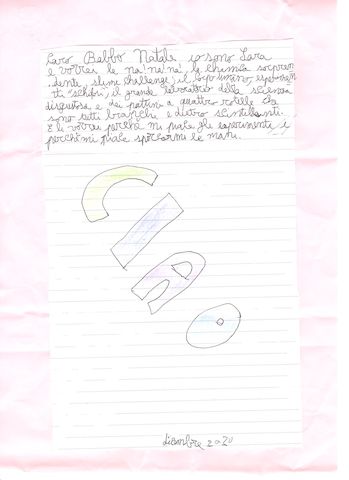 Caro Babbo Natale io sono Sara
e vorrei le na! na! na! la chimica sorpren
dente, slime challenge, il
schifosi, il grande laboratorio della scienza
disgustosa e dei pattini a quattro rotelle che
sono tutti bianchi e dietro scintillanti.
E li vorrei perché mi piace gli esperimenti e
perchè mi piace sporcarmi le mani.
CIAO
dicembre 2020